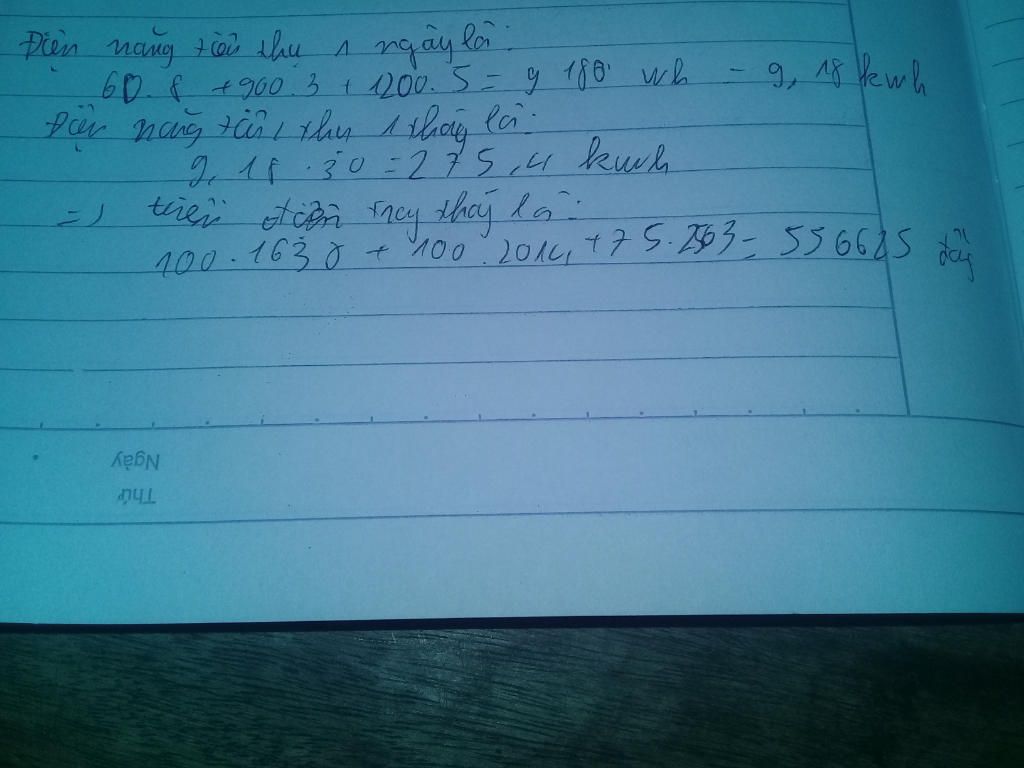 Điện năng tiêu thụ 1 ngày là:
60.8 + 900.3 + 1200.5 = 9180 wh = 9,18 kwh
Điện năng tiêu thụ 1 tháng là:
9,18 . 30 = 275,4 kwh
=> tiền điện may tháy là:
100.1630 + 100.2014 + 75.2563 = 556625 đồng
Ngày
Thứ